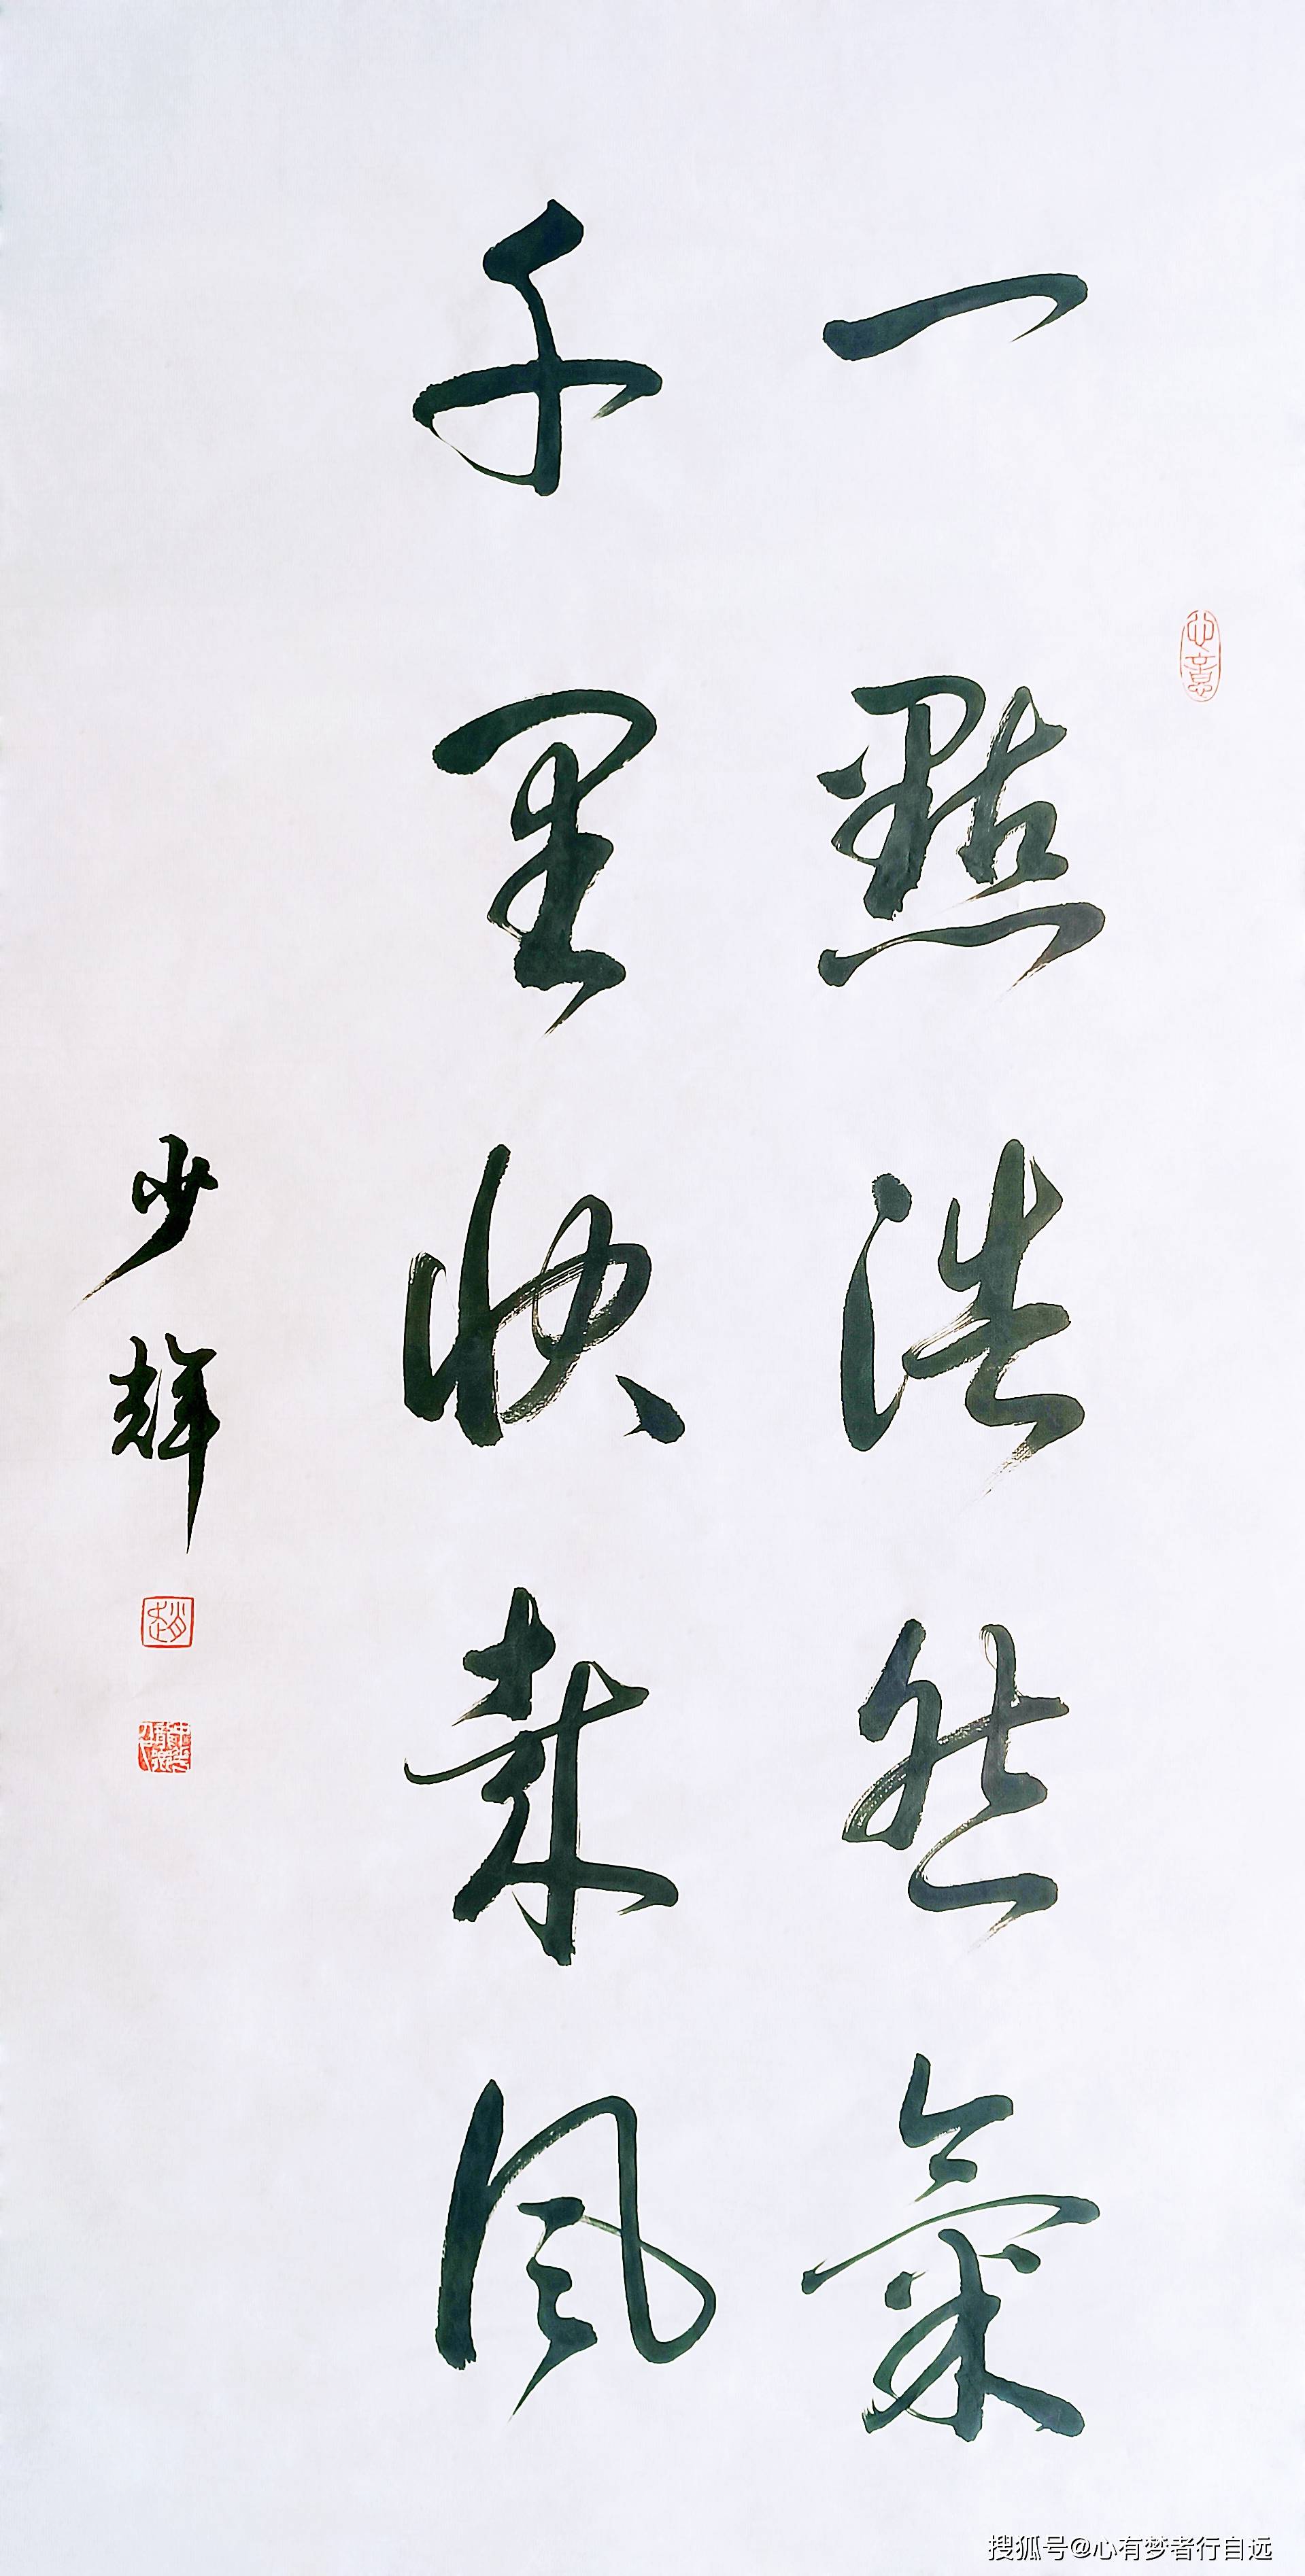 一點浩然氣
千里快哉風
少輝
心意
趙
搜狐号@心有梦者行自远